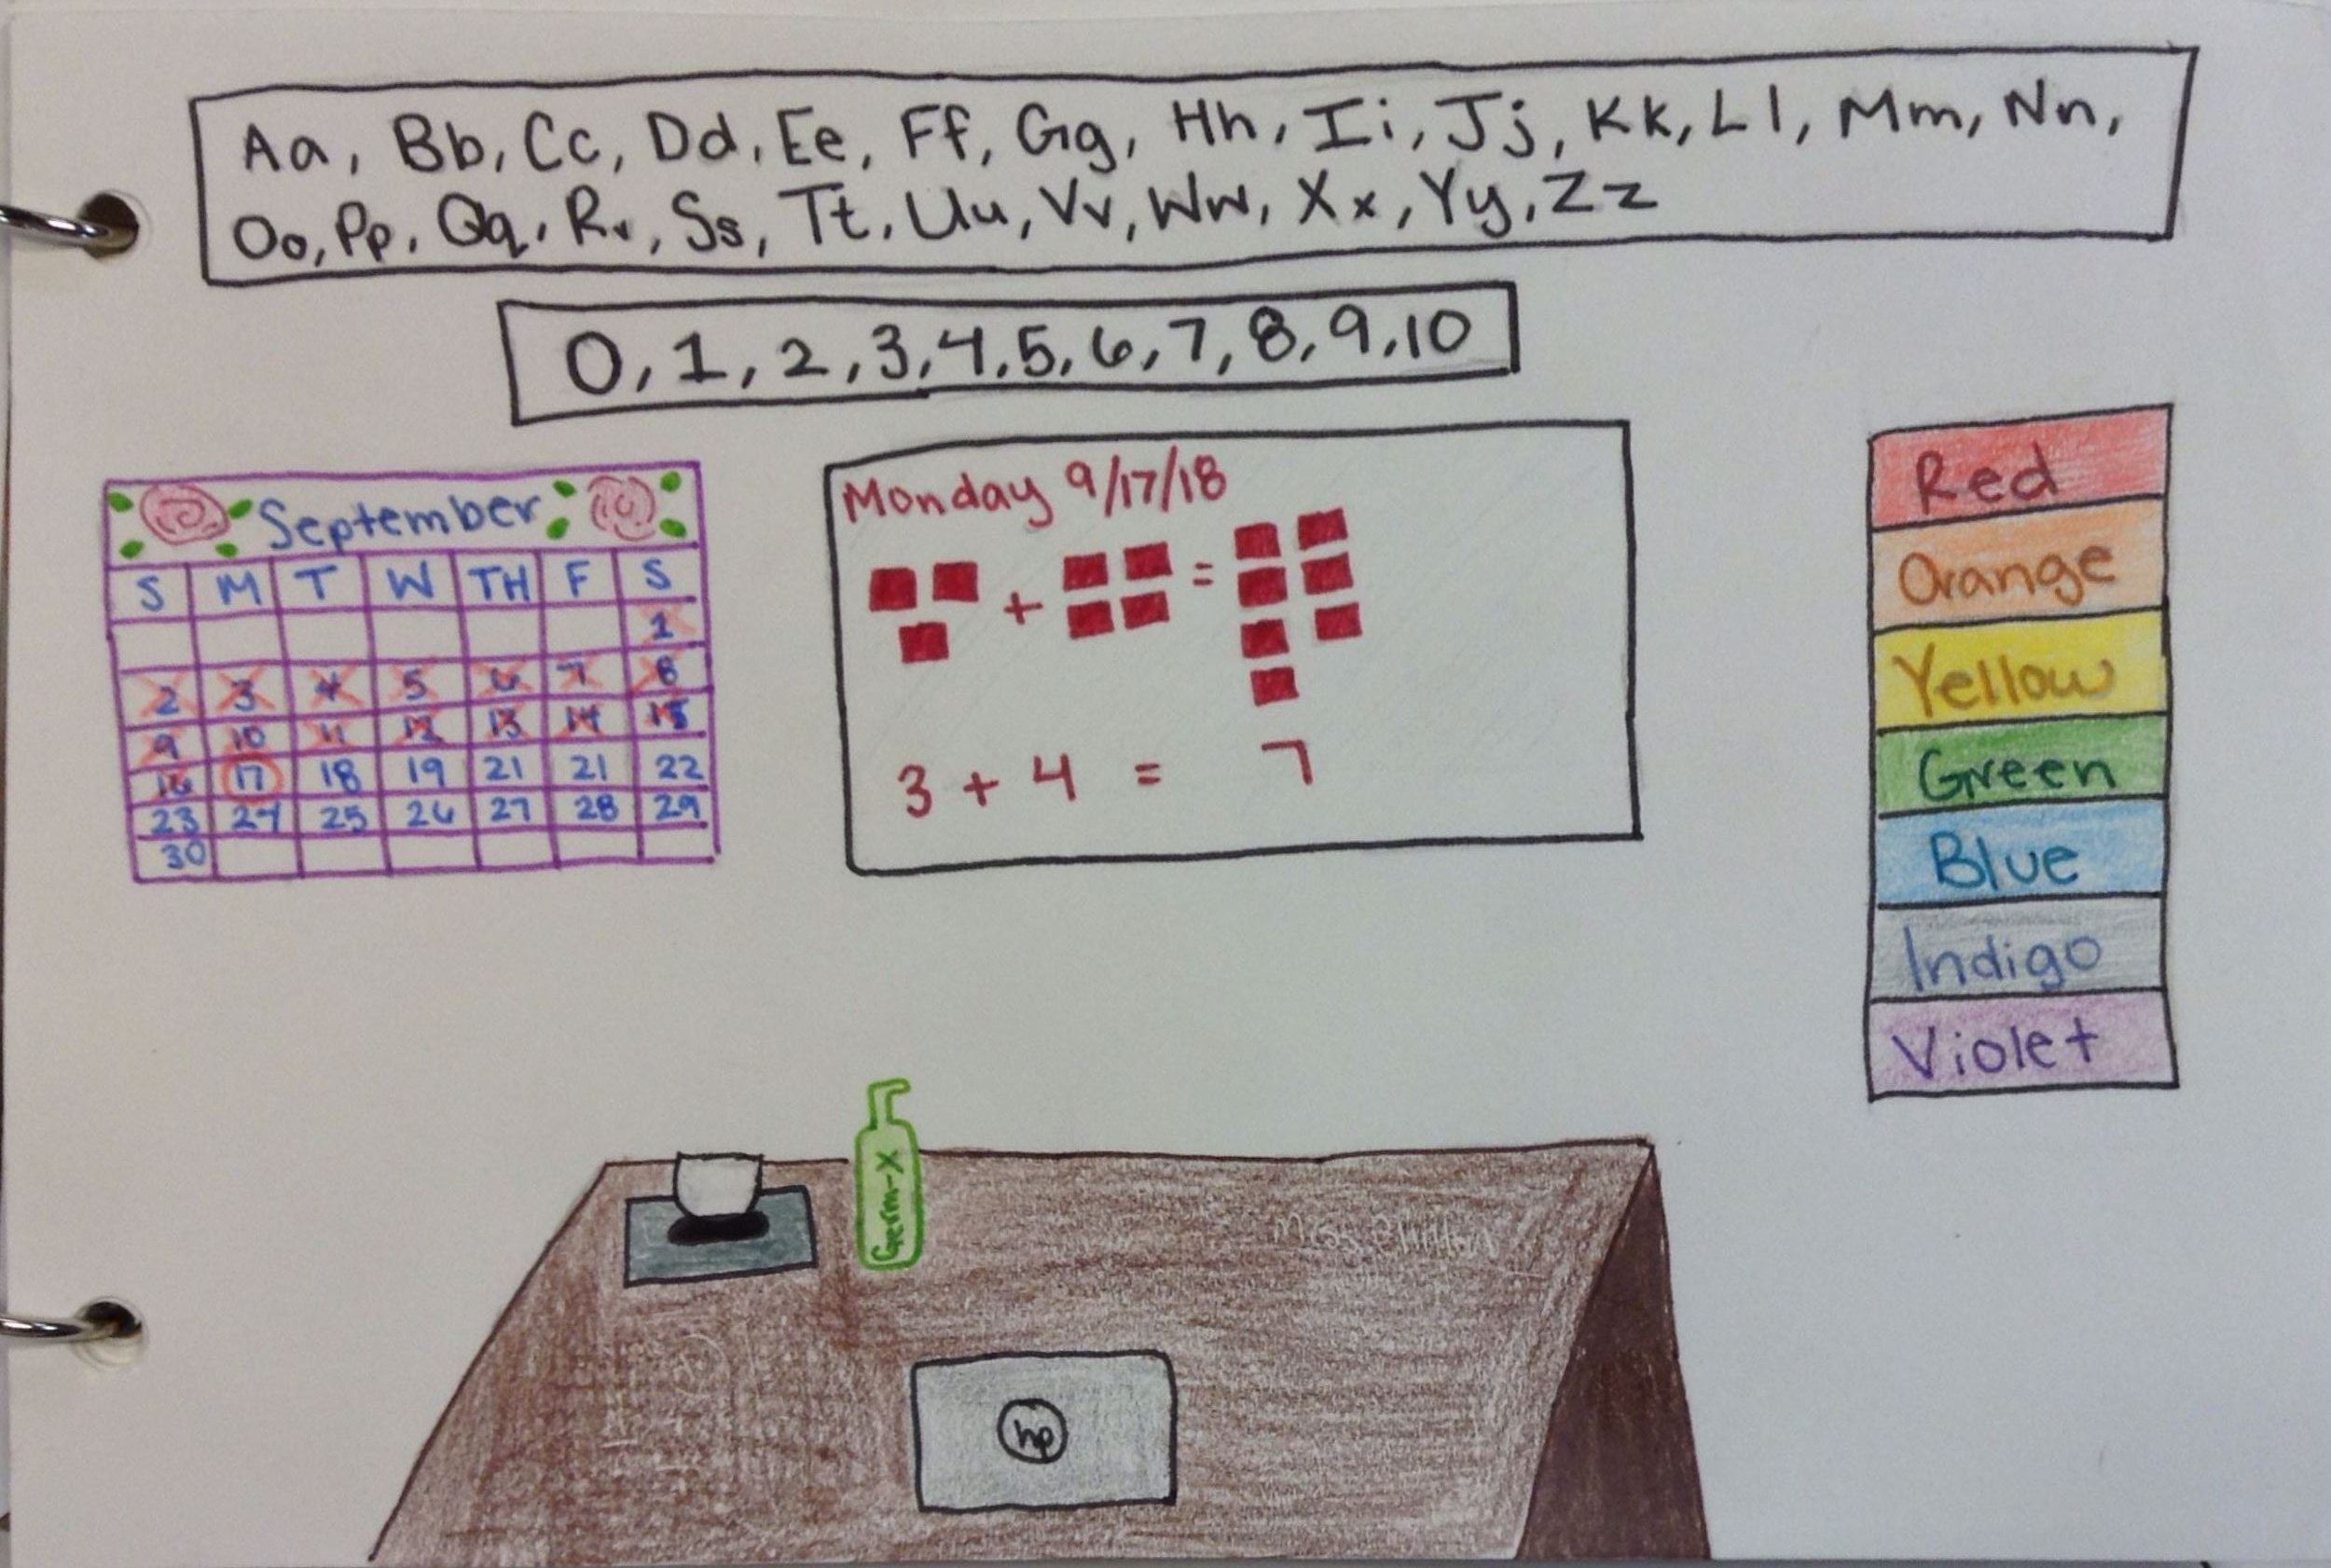 Aa, Bb, Cc, Dd, Ee, Ff, Gg, Hh, Ii, Jj, Kk, Ll, Mm, Nn,
Oo, Pp, Qq, Rr, Ss, Tt, Uu, Vv, Ww, Xx, Yy, Zz
0, 1, 2, 3, 4, 5, 6, 7, 8, 9, 10
September
S M T W TH F S
1
2 3 4 5 6 7 8
9 10 11 12 13 14 15
16 17 18 19 21 21 22
23 24 25 26 27 28 29
30
Monday 9/17/18
+ =
3 + 4 = 7
Red
Orange
Yellow
Green
Blue
Indigo
Violet
Germ-X
Miss
hp